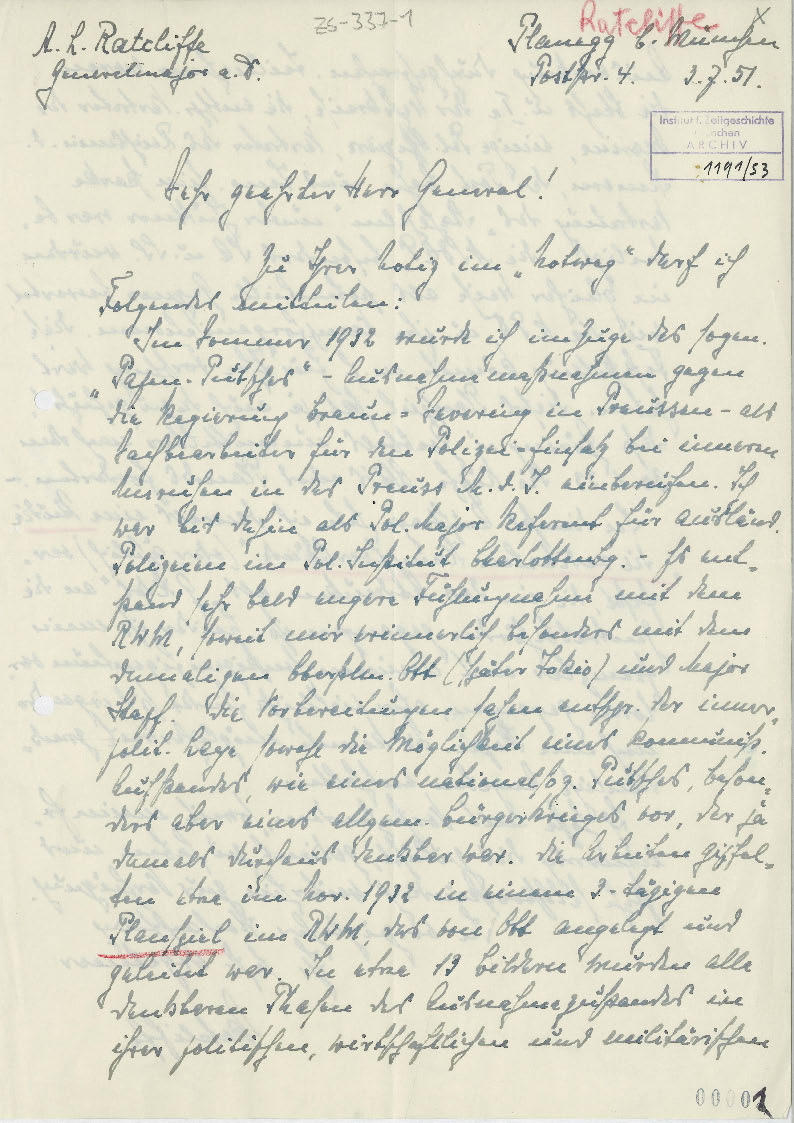 ZS-337-1
Ratcliffe
A. L. Ratcliffe
Generalmajor a.D.
Planegg b. München
Postspr. 4. 3.7.51.
Institut f. Zeitgeschichte
München
ARCHIV
1191/53
Sehr geehrter Herr General!
Zu Ihrer Notiz im „Notweg" darf ich
Folgendes mitteilen:
Im Sommer 1932 wurde ich im Zuge des sogen.
"Papen-Putsches" - Ausnahmemaßnahmen gegen
die Regierung Braun-Severing in Preussen - als
Sachbearbeiter für den Polizei-Einsatz bei inneren
Unruhen in das Preuss M.d.I. einberufen. Ich
war bis dahin als Pol. Major Referent für ausländ.
Polizeien im Pol. Institut Charlottenbg. - Es ent-
stand sehr bald engere Fühlungnahme mit dem
RWM, soweit mir erinnerlich besonders mit dem
damaligen Oberstltn. Ott (später Tokio) und Major
Staff. Die Vorbereitungen sahen entspr. der inner-
polit. Lage sowohl die Möglichkeit eines kommunist.
Aufstandes, wie eines nationalsoz. Putsches, beson-
ders aber eines allgem. Bürgerkrieges vor, der ja
damals durchaus denkbar war. Die Arbeiten gipfel-
ten etwa im Nov. 1932 in einem 3-tägigen
Planspiel im RWM, das von Ott angelegt und
geleitet war. In etwa 13 Bildern wurden alle
denkbaren Phasen des Ausnahmezustandes in
ihrer politischen, wirtschaftlichen und militärischen
00001